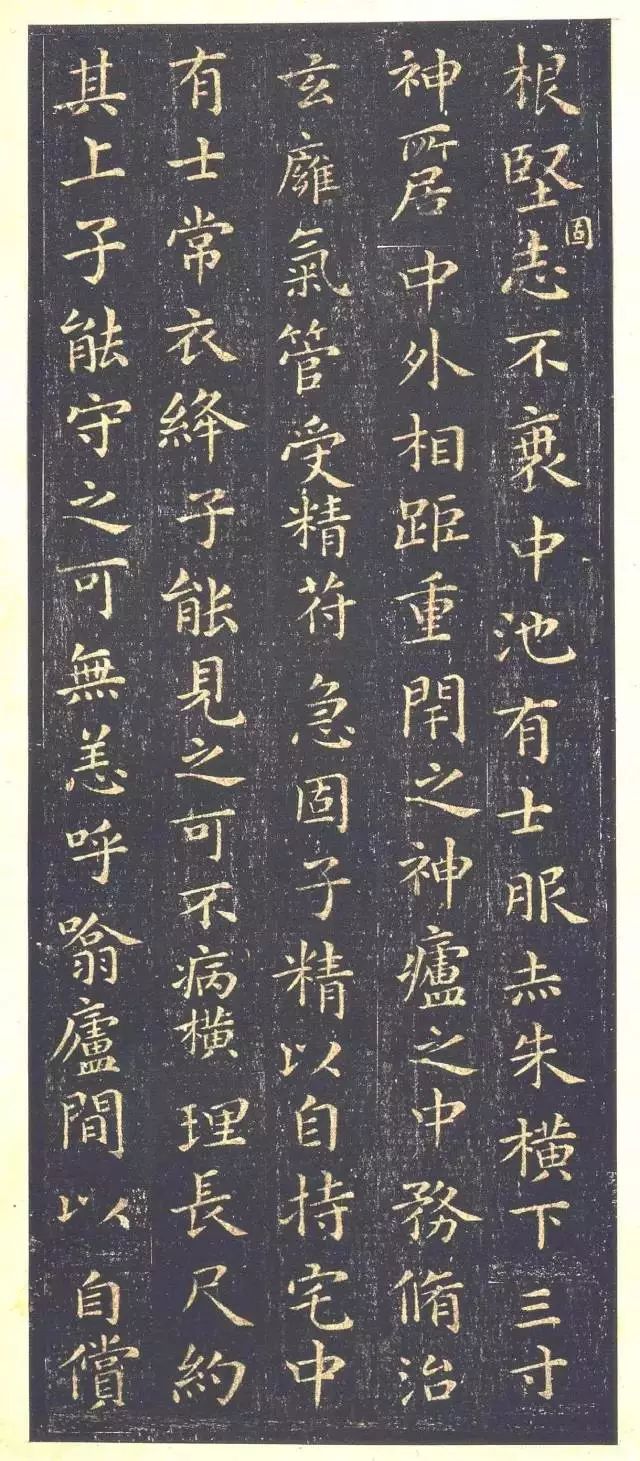 根堅固志不衰中池有士服赤朱橫下三寸
神所居中外相距重閇之神癰之中務脩治
玄㢕氣管受精苻急固子精以自持宅中
有士常衣絳子能見之可不病橫理長尺約
其上子能守之可無恙呼噏廬間以自償